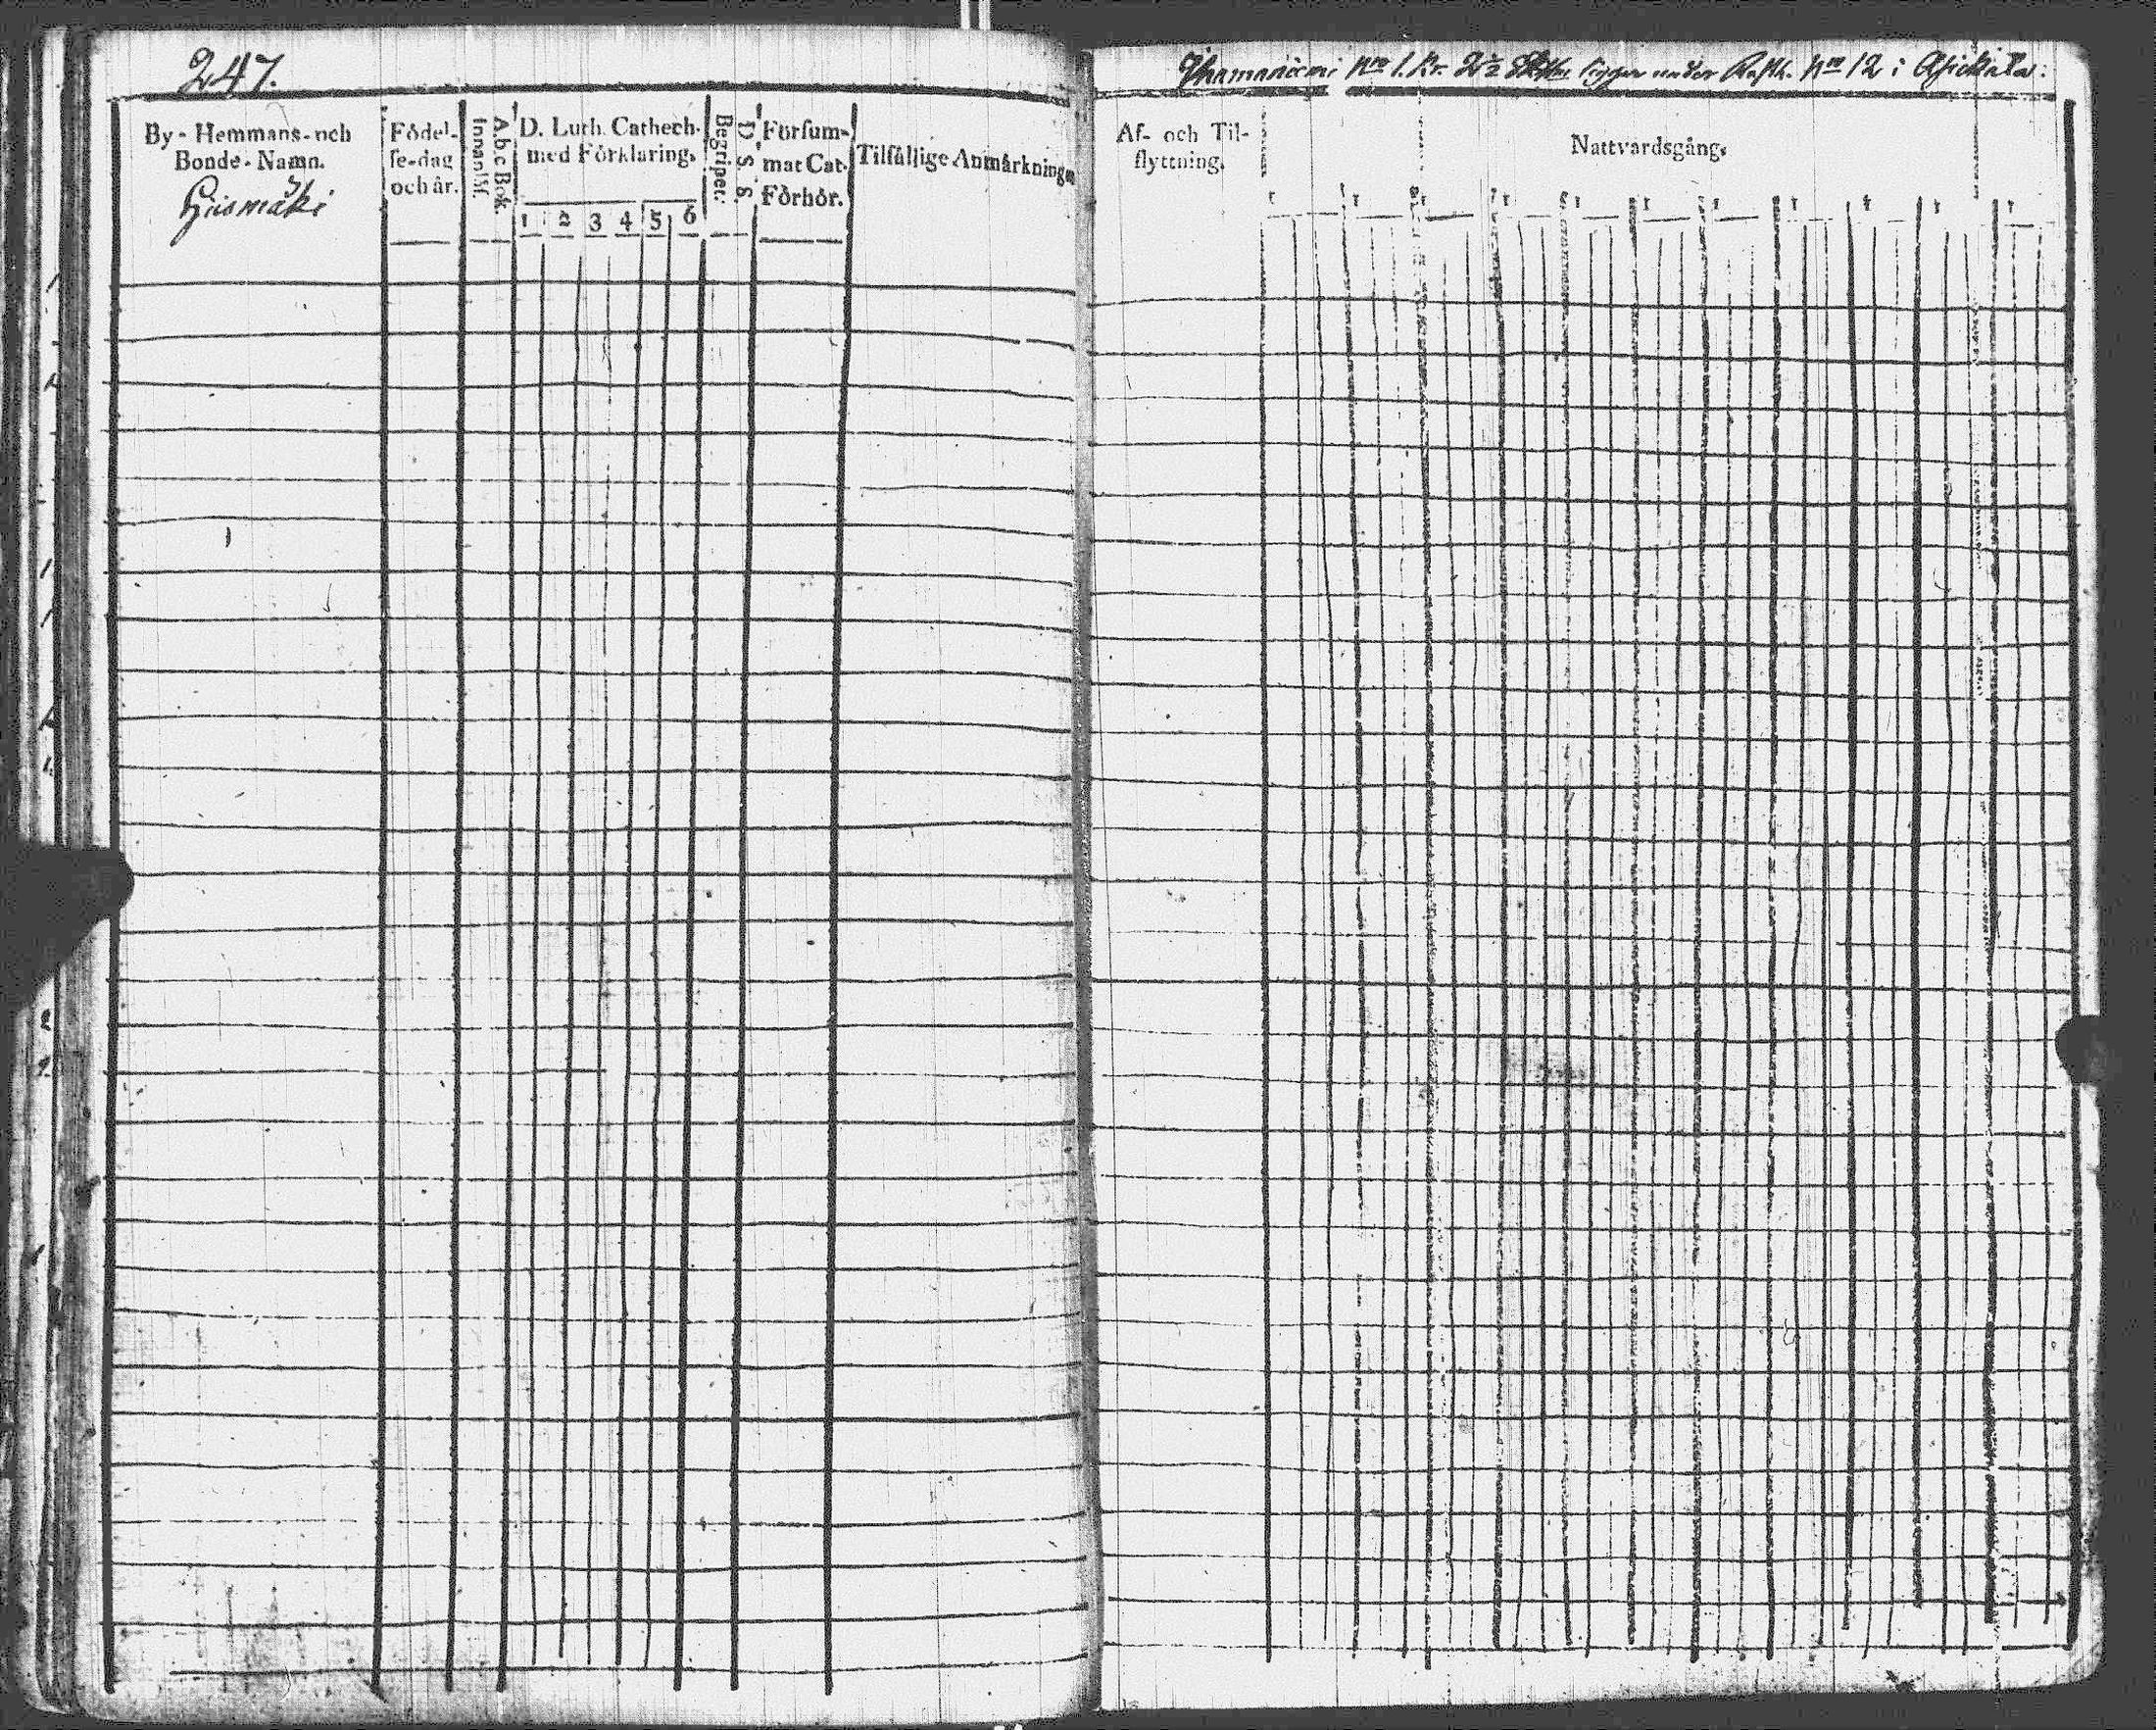 247.
By- Hemmans- och
Bonde- Namn.
Födel-
se-dag
och år.
Abc Bok.
Innanläs.
D. Luth. Cathech.
med Förklaring.
1 2 3 4 5 6
D. S. S.
Begripet.
Försum-
mat Cat.
Förhör.
Tilfällige Anmärkningar
N:o 1. Kr. 2½ ligger under N:o 12 i
Af- och Til-
flyttning.
Nattvardsgång.